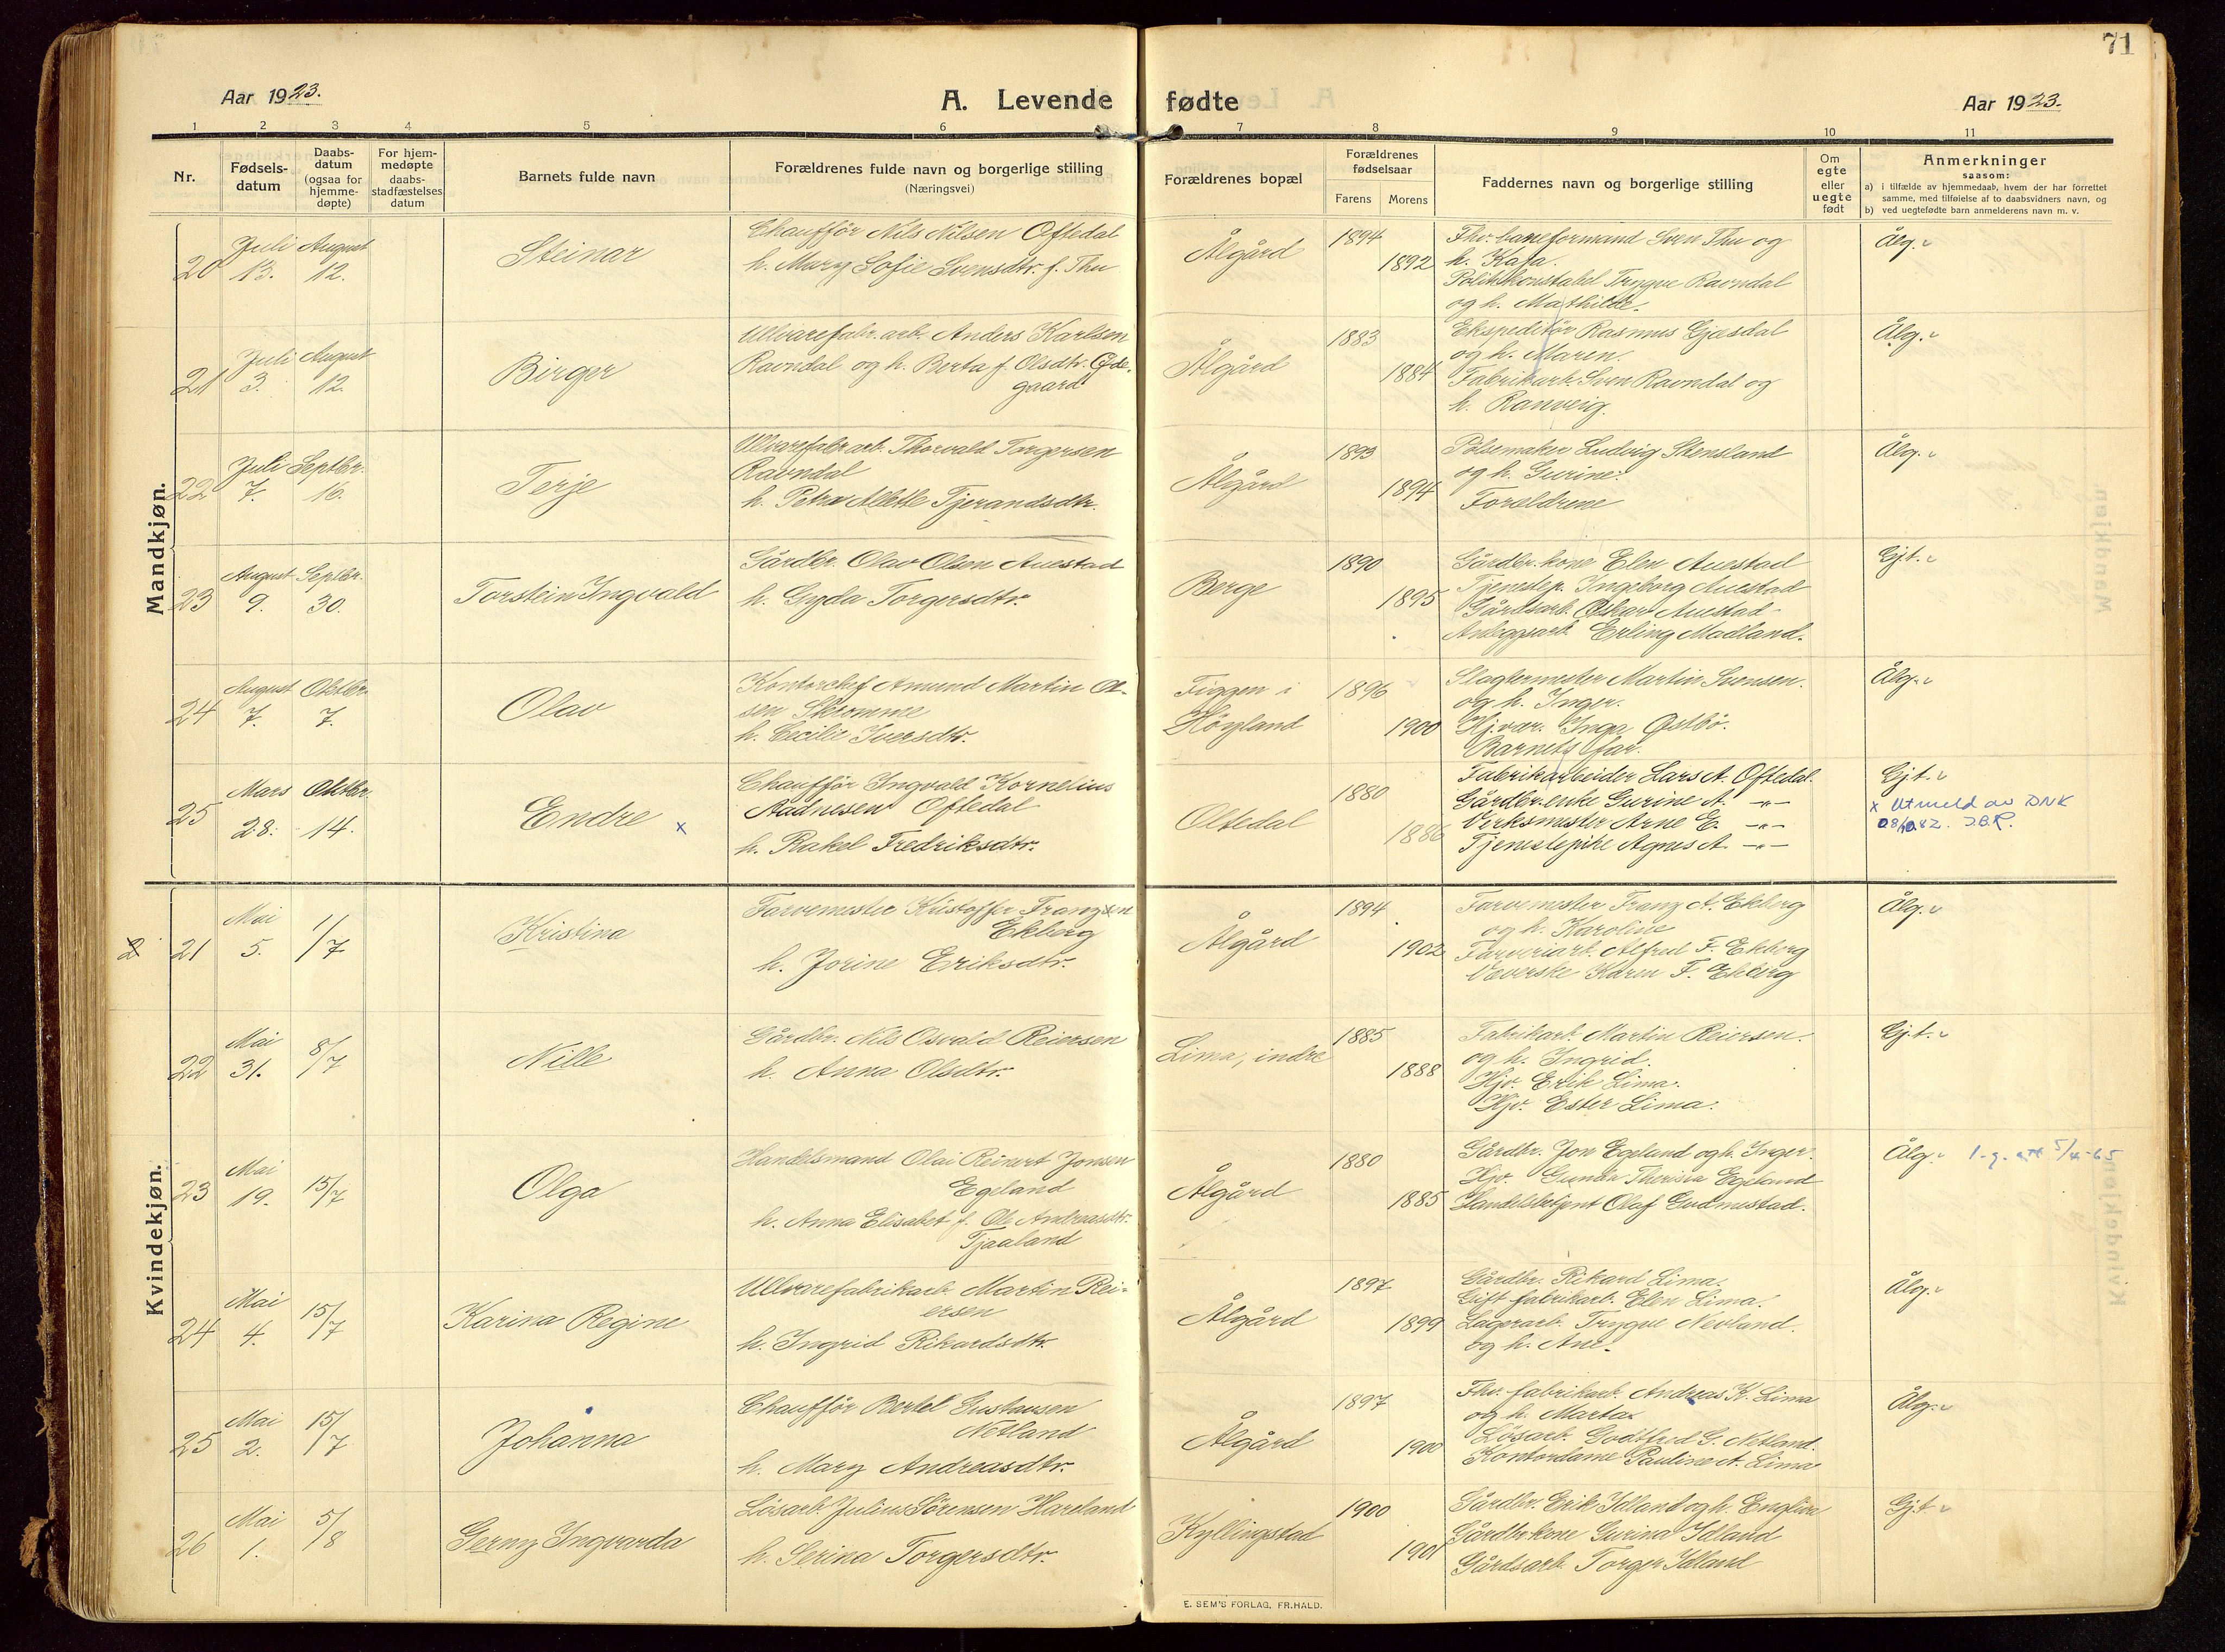 71
Aar 1923.
A. Levende fødte
Aar 1923.
1 2 3 4 5 6 7 8 9 10 11
Nr.
Fødsels-
datum
Daabs-
datum
(ogsaa for
hjemme-
døpte)
For hjem-
medøpte
daabs-
stadfæstelses
datum
Barnets fulde navn
Forældrenes fulde navn og borgerlige stilling
(Næringsvei)
Forældrenes bopæl
Forældrenes
fødselsaar
Farens Morens
Faddernes navn og borgerlige stilling
Om
egte
eller
uegte
født
Anmerkninger
saasom:
a) i tilfælde av hjemmedaab, hvem der har forrettet
samme, med tilføielse af to daabsvidners navn, og
b) ved uegtefødte barn anmelderens navn m. v.
Mandkjøn.
20
Juli
13.
August
12.
Steinar
Chaufför Nils Nilsen Oftedal
h. Mary Sofie Svensdtr. f. Thu
Ålgård
1894
1892
Fhv. baneformand Sven Thu og
h. Kaia.
Politikonstabel Trygve Ravndal
og h. Mathilde.
Ålg.
21
Juli
3.
August
12.
Birger
Ullvarefabr. arb. Anders Karlsen
Ravndal og h. Berta f. Olsdtr. Øde-
gaard
Ålgård
1883
1884
Ekspeditör Rasmus Gjesdal
og h. Maren.
Fabrikarb. Sven Ravndal og
h. Ranveig.
Ålg.
22
Juli
7.
Septbr.
16.
Terje
Ullvarefabr arb. Thorvald Torgersen
Ravndal
h. Petra Alette Tjerandsdtr.
Ålgård
1893
1894
Pölsemaker Ludvig Stensland
og h. Gurine.
Forældrene
Ålg.
23
August
9.
Septbr.
30.
Torstein Ingvald
Gårdbr. Olav Olsen Auestad
h. Gyda Torgersdtr.
Berge
1890
1895
Gårdbr. kone Elen Auestad
Tjenestep. Ingeborg Auestad
Gårdsarb. Oskar Auestad
Anleggsarb. Erling Madland.
Gj.t.
24
August
7.
Oktbr.
7.
Olav
Kontorchef Amund Martin Ol-
sen Skromme
h. Cecilie Iversdtr.
Figgen i
Høyland
1896
1900
Slagtermester Martin Svensen.
og h. Inger.
Hj. vær. Inga Østbö.
Barnets far.
Ålg.
25
Mars
28.
Oktbr.
14.
Endre x
Chauffør Ingvald Kornelius
Aadnesen Oftedal
h. Rakel Fredriksdtr.
Oltedal
1880
1886
Fabrikarbeider Lars A. Oftedal.
Gårdbr. enke Gurine A. —"—
Verksmester Arne E. —"—
Tjenestepike Agnes A. —"—
Gj.t.
x Utmeld av DNK
08/10.82. J.B.R.
Kvindekjøn.
2
21
Mai
5.
1/7
Kristina
Farvemester Kristoffer Franzsen
Ekberg
h. Jorine Eriksdtr.
Ålgård
1894
1902
Farvemester Franz A. Ekberg
og h. Karoline
Farveriarb. Alfred F. Ekberg
Væverske Karen F. Ekberg
Ålg.
22
Mai
31.
8/7
Nille
Gårdbr. Nils Osvald Reiersen
h. Anna Olsdtr.
Lima, indre
1885
1888
Fabrikarb. Martin Reiersen.
og h. Ingrid.
Hjv. Erik Lima.
Hjv. Ester Lima.
Gj.t.
23
Mai
19.
15/7
Olga
Handelsmand Olai Reinert Jonsen
Egeland
h. Anna Elisabet f. Ole Andreasdtr.
Tjaaland
Ålgård
1880
1885
Gårdbr. Jon Egeland og h. Inger.
Hjv. Gunda Therisia Egeland
Handelsbetjent Olaf Gudmestad.
Ålg. 1.g. att 5/4-65
24
Mai
4.
15/7
Karina Regine
Ullvarefabrikarb. Martin Rei-
ersen
h. Ingrid Rikardsdtr.
Ålgård
1897
1899
Gårdbr. Rikard Lima.
Gift fabrikarb. Elen Lima.
Lagerarb. Trygve Nevland.
og h. Ane.
Ålg.
25
Mai
2.
15/7
Johanna
Chauffør Bertel Gustavsen
Netland
h. Mary Andreasdtr.
Ålgård
1897
1900
Fhv. fabrikarb. Andreas K. Lima
og h. Marta.
Lösarb. Godtfred G. Netland.
Kontordame Pauline A. Lima
Ålg.
26
Mai
1.
5/8
Gerny Ingvarda
Lösarb. Julius Sörensen Hareland
h. Serina Torgersdtr.
Kyllingstad
1900
1901
Gårdbr. Erik Idland og h. Engline
Gårdbr kone Gurina Idland
Gårdsarb. Torger Idland
Gj.t.
E. SEM'S FORLAG, FR.HALD.